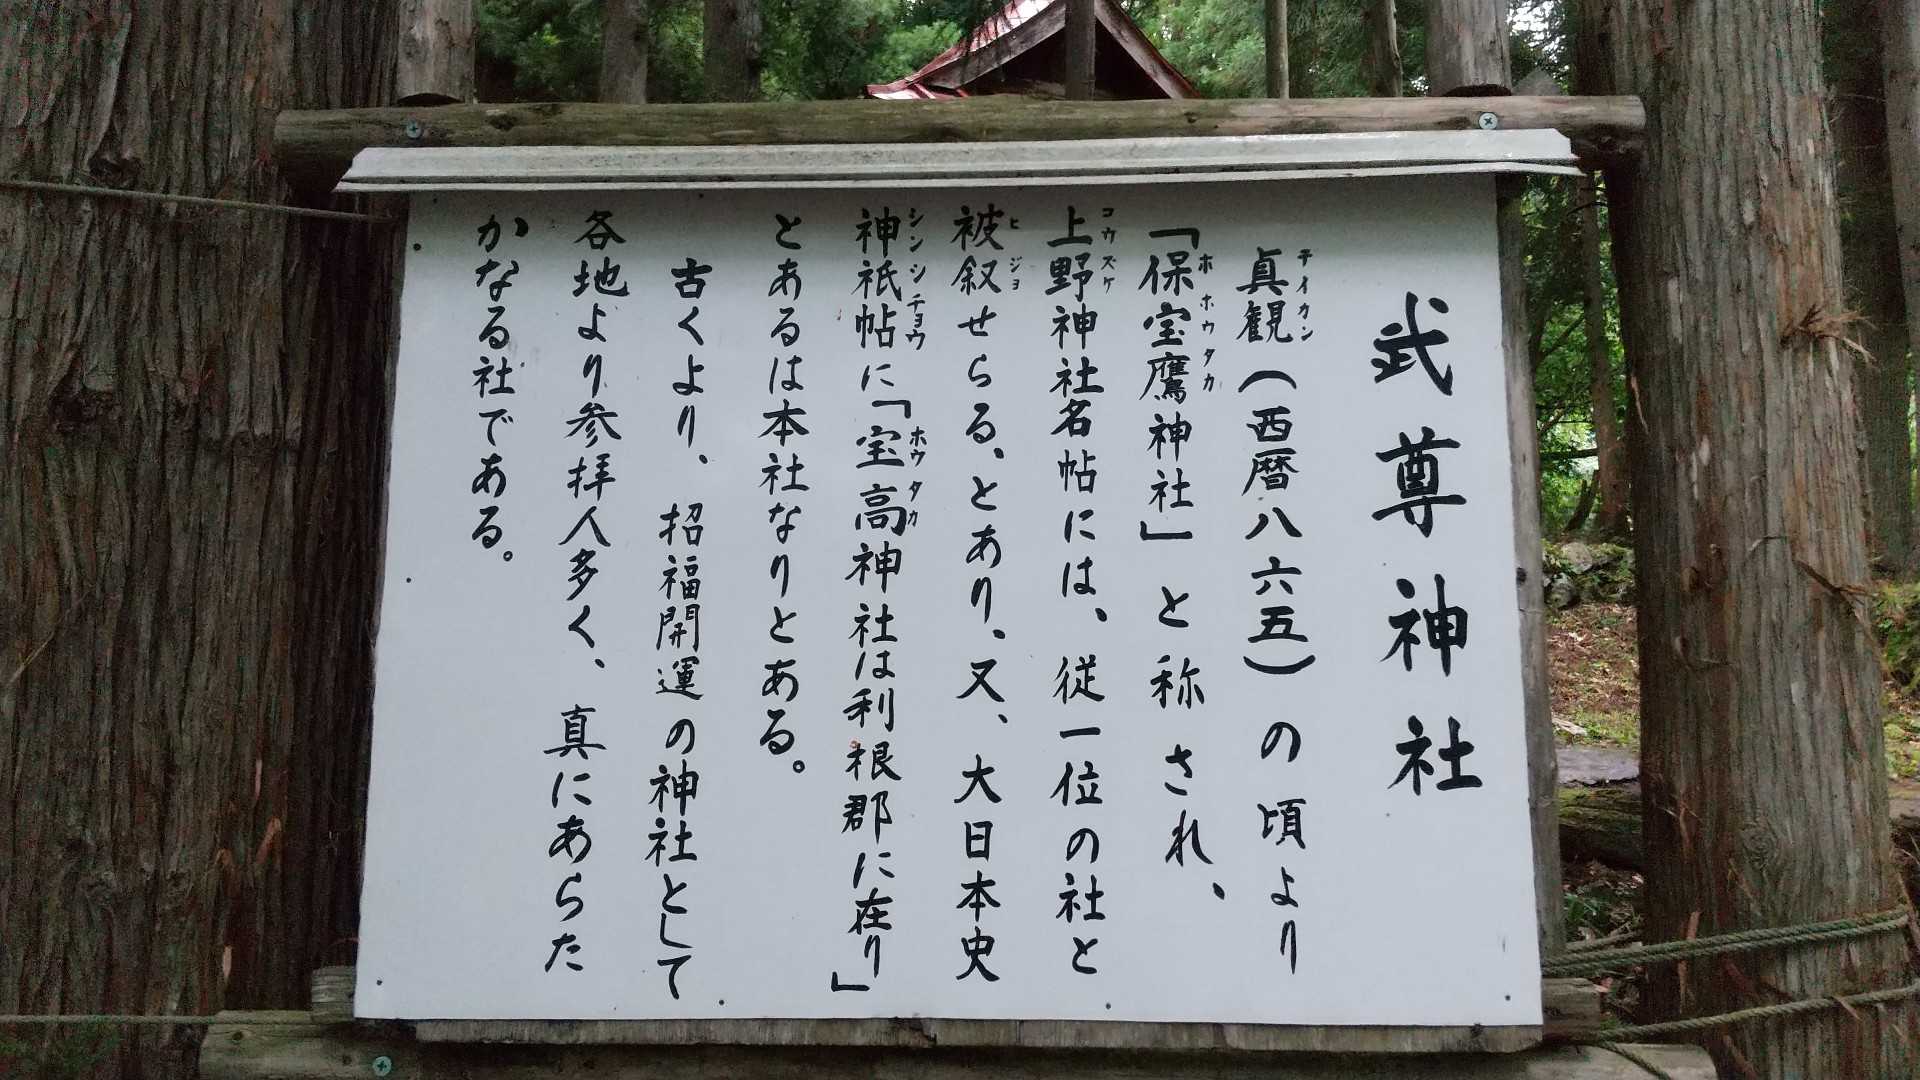 武尊神社
貞観（西暦八六五）の頃より
「保宝鷹神社」と称され、
上野神社名帖には、従一位の社と
被叙せらる、とあり、又、大日本史
神祇帖に「宝高神社は利根郡に在り」
とあるは本社なりとある。
古くより、招福開運の神社として
各地より参拝人多く、真にあらた
かなる社である。